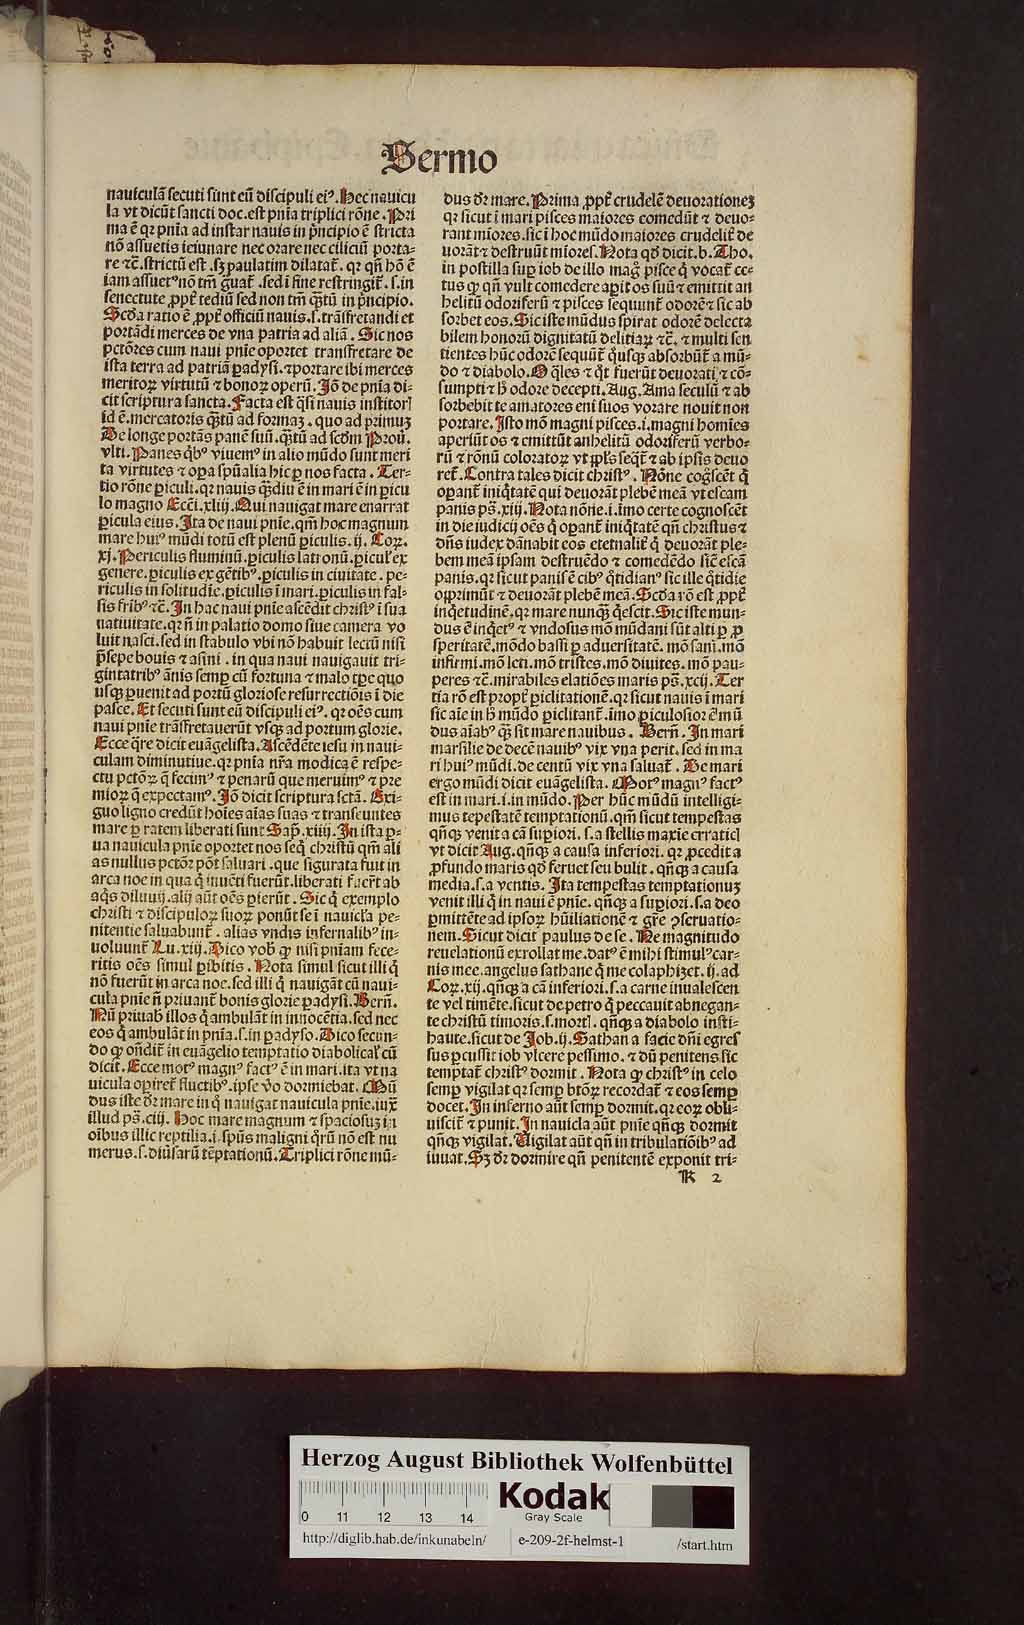 Sermo
nauiculã secuti sunt eũ discipuli ei⁹. Hec nauicu
la vt dicũt sancti doc. est pnĩa triplici rõne. Pri
ma ẽ qr pnĩa ad instar nauis in p̃ncipio ẽ stricta
nõ assuetis ieiunare nec orare nec ciliciũ porta⸗
re ⁊c̃. strictũ est. sꝫ paulatim dilatat᷑. qr qñ hõ ẽ
iam assuet⁹ nõ tm̃ g̃uat᷑. sed ĩ fine restringit᷑. s. in
senectute ꝓpt᷑ tediũ sed non tm̃ q̃tũ in p̃ncipio.
Scd̃a ratio ẽ ꝓpt᷑ officiũ nauis. s. trãsfretandi et
portãdi merces de vna patria ad aliã. Sic nos
pctõres cum naui pnĩe oportet transfretare de
ista terra ad patriã ꝑadysi. ⁊ portare ibi merces
meritoꝝ virtutũ ⁊ bonoꝝ operũ. Iõ de pnĩa di⸗
cit scriptura sancta. Facta est q̃si nauis institorꝭ
id ẽ. mercatoris q̃tũ ad formaꝫ. quo ad primuꝫ
De longe portãs panẽ suũ. q̃tũ ad scd̃m Prou̾.
vlti. Panes q̃b⁹ viuem⁹ in alio mũdo sunt meri
ta virtutes ⁊ oꝑa spũalia hic ꝑ nos facta. Ter⸗
tio rõne ꝑiculi. qr nauis q̃diu ẽ in mari ẽ in ꝑicu
lo magno Ecc̃i. xliij. Qui nauigat mare enarrat
ꝑicula eius. Ita de naui pnĩe. qm̃ hoc magnum
mare hui⁹ mũdi totũ est plenũ ꝑiculis. ij. Coꝝ.
xj. Periculis fluminũ. ꝑiculis latronũ. ꝑicul̾ ex
genere. ꝑiculis ex gẽtib⁹. ꝑiculis in ciuitate. pe⸗
riculis in solitudie. ꝑiculis ĩ mari. ꝑiculis in fal⸗
sis frib⁹ ⁊c̃. In hac naui pnĩe ascẽdit christ⁹ ĩ sua
natiuitate. qr ñ in palatio domo siue camera vo
luit nasci. sed in stabulo vbi nõ habuit lectũ nisi
p̃sepe bouis ⁊ asini. in qua naui nauigauit tri⸗
gintatrib⁹ ãnis semꝑ cũ fortuna ⁊ malo tꝑe quo
usqꝫ ꝑuenit ad portũ gloriose resurrectiõis ĩ die
pasce. Et secuti sunt eũ discipuli ei⁹. qr oẽs cum
naui pnĩe trãsfretauerũt vsqꝫ ad portum glorie.
Ecce q̃re dicit euãgelista. Ascẽdẽte iesu in naui⸗
culam diminutiue. qr pnĩa nr̃a modica ẽ respe⸗
ctu pctõꝝ q̃ fecim⁹ ⁊ penarũ que meruim⁹ ⁊ pre
mioꝝ q̃ expectam⁹. Iõ dicit scriptura sctã. Exi⸗
guo ligno credũt hoĩes aĩas suas ⁊ transeuntes
mare ꝑ ratem liberati sunt Sap̃. xiiij. In ista ꝑ⸗
ua nauicula pnĩe oportet nos seq̃ christũ qm̃ ali
as nullus pctõꝝ põt saluari. que figurata fuit in
arca noe in qua q̃ inuẽti fuerũt. liberati fuer̃t ab
aq̃s diluuij. alij aũt oẽs ꝑierũt. Sic q̃ exemplo
christi ⁊ discipuloꝝ suoꝝ ponũt se ĩ nauicl̾a pe⸗
nitentie saluabunt᷑. alias vndis infernalib⁹ in⸗
uoluunt᷑ Lu. xiij. Dico vob̾ ꝙ nisi pnĩam fece⸗
ritis oẽs simul ꝑibitis. Nota simul sicut illi q̃
nõ fuerũt in arca noe. sed illi q̃ nauigãt cũ naui⸗
cula pnĩe ñ priuant᷑ bonis glorie ꝑadysi. Berñ.
Nũ priuab̾ illos q̃ ambulãt in innocẽtia. sed nec
eos q̃ ambulãt in pnĩa. s. in ꝑadyso. Dico secun⸗
do ꝙ oñdit᷑ in euãgelio temptatio diabolical̾ cũ
dicit. Ecce mot⁹ magn⁹ fact⁹ ẽ in mari. ita vt na
uicula oꝑiret᷑ fluctib⁹. ipse v̾o dormiebat. Mũ
dus iste d̾r mare in q̃ nauigat nauicula pnĩe. iux̃
illud ps̃. ciij. Hoc mare magnum ⁊ spaciosuꝫ in
oĩbus illic reptilia. i. spũs maligni q̃rũ nõ est nu
merus. s. diu̾sarũ tẽptationũ. Triplici rõne mũ⸗
dus d̾r mare. Prima ꝓpt᷑ crudelẽ deuorationeꝫ
qr sicut ĩ mari pisces maiores comedũt ⁊ deuo⸗
rant miores. sic ĩ hoc mũdo maiores crudelit᷑ de
uorãt ⁊ destruũt mĩores. Nota qd̾ dicit. b. Tho.
in postilla suꝑ iob de illo mag̊ pisce q̃ vocat᷑ ce⸗
tus ꝙ qñ vult comedere aꝑit os suũ ⁊ emittit an
helitũ odoriferũ ⁊ pisces sequunt᷑ odorẽ ⁊ sic ab
sorbet eos. Sic iste mũdus spirat odorẽ delecta
bilem honorũ dignitatũ delitiaꝝ ⁊c̃. ⁊ multi sen
tientes hũc odorẽ sequũt᷑ q̃usqꝫ absorbũt᷑ a mũ⸗
do ⁊ diabolo. O q̃les ⁊ q̃t fuerũt deuorati ⁊ cõ⸗
sumpti ⁊ h̾ odore decepti. Aug. Ama seculũ ⁊ ab
sorbebit te amatores eni suos vorare nouit non
portare. Isto mõ magni pisces. i. magni homĩes
aperiũt os ⁊ emittũt anhelitũ odoriferũ verbo⸗
rũ ⁊ rõnũ coloratoꝝ vt ppl̾s seq̃t᷑ ⁊ ab ipsis deuo
ret᷑. Contra tales dicit christ⁹. Nõne cog̃scẽt q̃
oꝑant᷑ iniq̃tatẽ qui deuorãt plebẽ meã vt escam
panis ps̃. xiij. Nota nõne. i. imo certe cognoscẽt
in die iudicij oẽs q̃ oꝑant᷑ iniq̃tatẽ qñ christus ⁊
dñs iudex dãnabit eos etetnalit᷑ q̃ deuorãt ple⸗
bem meã ipsam destruẽdo ⁊ comedẽdo sic̃ escã
panis. qr sicut panis ẽ cib⁹ q̃tidian⁹ sic ille q̃tidie
opprimũt ⁊ deuorãt plebẽ meã. Scd̃a rõ est ꝓpt᷑
inq̃etudinẽ. qr mare nunq̃ q̃escit. Sic iste mun⸗
dus ẽ inq̃et⁹ ⁊ vndosus mõ mũdani sũt alti ꝑ ꝓ
speritatẽ. mõdo bassi ꝑ aduersitatẽ. mõ sani. mõ
infirmi. mõ leti. mõ tristes. mõ diuites. mõ pau⸗
peres ⁊c̃. mirabiles elatiões maris ps̃. xcij. Ter
tia rõ est propt᷑ ꝑiclitationẽ. qr sicut nauis ĩ mari
sic aĩe in h̾ mũdo ꝑiclitant᷑. ĩmo ꝑiculosior ẽ mũ
dus aĩab⁹ q̃ sit mare nauibus. Berñ. In mari
marsilie de decẽ nauib⁹ vix vna perit. sed in ma
ri hui⁹ mũdi. de centũ vix vna saluat᷑. De mari
ergo mũdi dicit euãgelista. Mot⁹ magn⁹ fact⁹
est in mari. i. in mũdo. Per hũc mũdũ intelligi⸗
mus tepestatẽ temptationũ. qm̃ sicut tempestas
qñqꝫ venit a cã supiori. s. a stellis maxĩe erraticꝭ
vt dicit Aug. qñqꝫ a causa inferiori. qr ꝓcedit a
ꝓfundo maris qd̾ feruet seu bulit. qñqꝫ a causa
media. s. a ventis. Ita tempestas temptationuꝫ
venit illi q̃ in naui ẽ pnĩe. qñqꝫ a supiori. s. a deo
ꝑmittẽte ad ipsoꝝ hũiliationẽ ⁊ gr̃e ꝯseruatio⸗
nem. Sicut dicit paulus de se. Ne magnitudo
reuelationũ extollat me. dat⁹ ẽ mihi stimul⁹ car⸗
nis mee. angelus sathane q̃ me colaphizet. ij. ad
Coꝝ. xij. qñqꝫ a cã inferiori. s. a carne inualescen
te vel timẽte. sicut de petro q̃ peccauit abnegan⸗
te christũ timoris. s. mortꝭ. qñqꝫ a diabolo insti⸗
hante. sicut de Job. ij. Sathan a facie dñi egres̾
sus ꝑcussit iob vlcere pessimo. ⁊ dũ penitens sic
temptat᷑ christ⁹ dormit. Nota ꝙ christ⁹ in celo
semꝑ vigilat qr semꝑ btõꝝ recordat᷑ ⁊ eos semꝑ
docet. In inferno aũt semꝑ dormit. qr eoꝝ obli⸗
uiscit᷑ ⁊ punit. In nauicla aũt pnĩe qñqꝫ dormit
qñqꝫ vigilat. Uigilat aũt qñ in tribulatiõib⁹ ad
iuuat. Sꝫ d̾r dormire qñ penitentẽ exponit tri⸗
K 2
Herzog August Bibliothek Wolfenbüttel
0 11 12 13 14
Kodak
Gray Scale
http://diglib.hab.de/inkunabeln/ e-209-2f-helmst-1 /start.htm